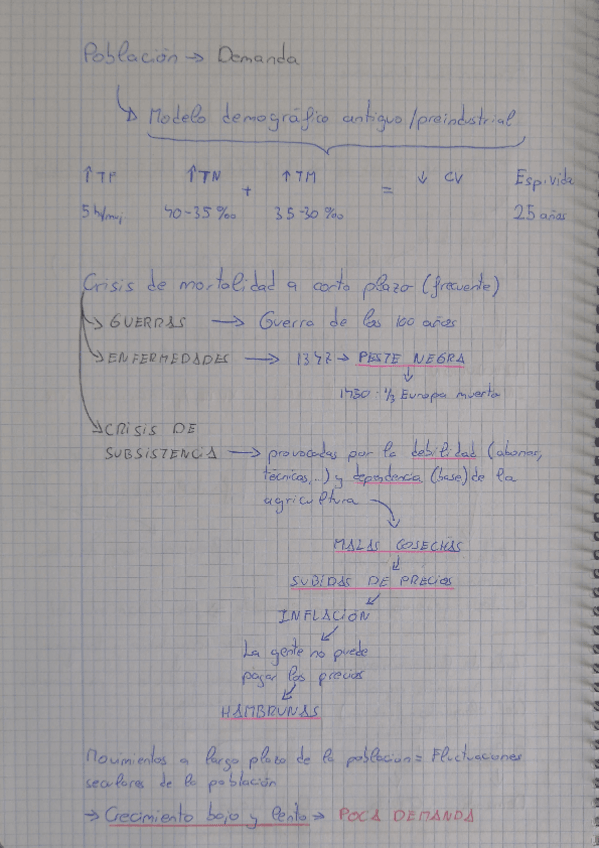 Población → Demanda
↳ Modelo demográfico antiguo/preindustrial
↑TF ↑TN + ↑TM = ↓ CV Esp.vida
5h/muj 40-35‰ 35-30‰ 25 años
Crisis de mortalidad a corto plazo (frecuente)
→ GUERRAS → Guerra de los 100 años
→ ENFERMEDADES → 1347 → PESTE NEGRA
↓
1430: 1/3 Europa muerta
→ CRISIS DE
SUBSISTENCIA → provocadas por la debilidad (abonos,
técnicas,..) y dependencia (base) de la
agricultura
MALAS COSECHAS
↓
SUBIDAS DE PRECIOS
INFLACIÓN
La gente no puede
pagar los precios
HAMBRUNAS
Movimientos a largo plazo de la población = Fluctuaciones
seculares de la población
→ Crecimiento bajo y lento → POCA DEMANDA